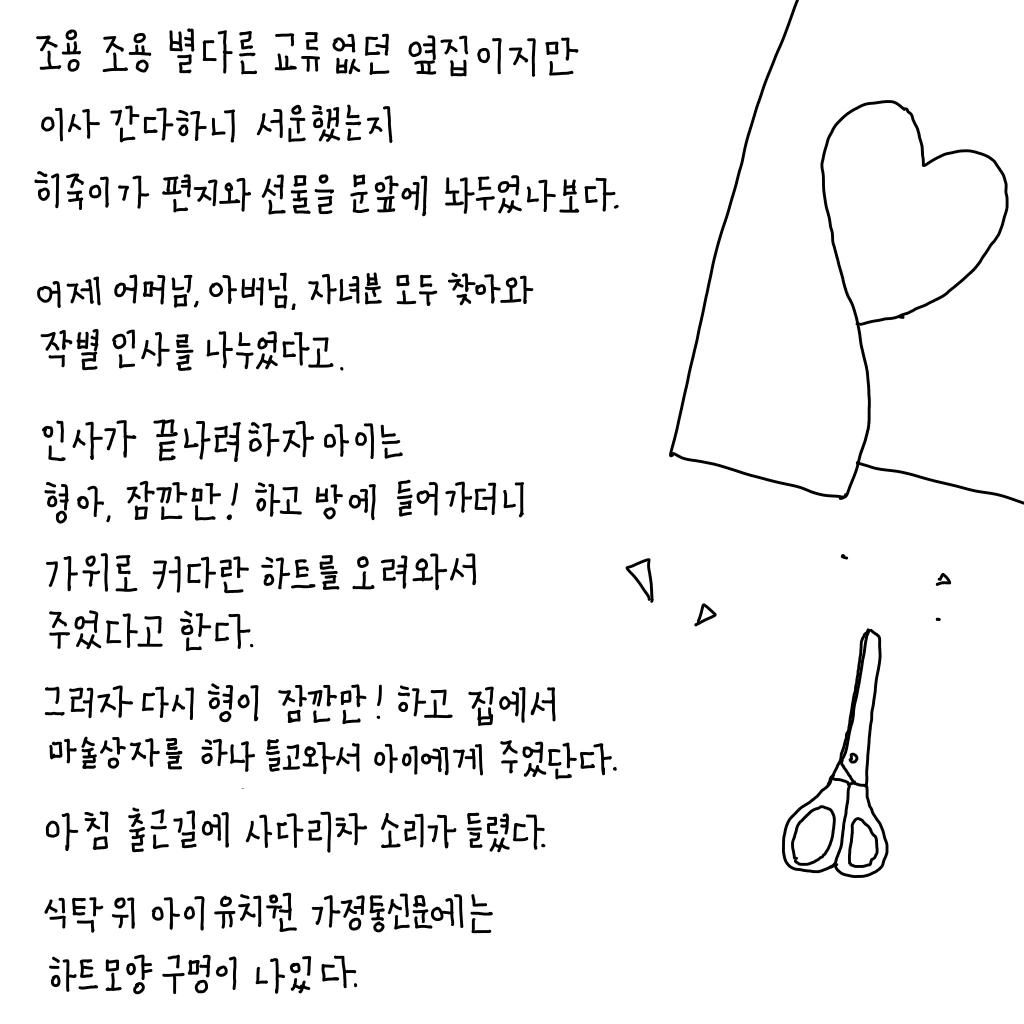 조용 조용 별다른 교류없던 옆집이지만
이사 간다하니 서운했는지
히죽이가 편지와 선물을 문앞에 놔두었나보다.
어제 어머님, 아버님, 자녀분 모두 찾아와
작별 인사를 나누었다고.
인사가 끝나려하자 아이는
형아, 잠깐만! 하고 방에 들어가더니
가위로 커다란 하트를 오려와서
주었다고 한다.
그러자 다시 형이 잠깐만! 하고 집에서
마술상자를 하나 들고와서 아이에게 주었단다.
아침 출근길에 사다리차 소리가 들렸다.
식탁 위 아이 유치원 가정통신문에는
하트모양 구멍이 나있다.